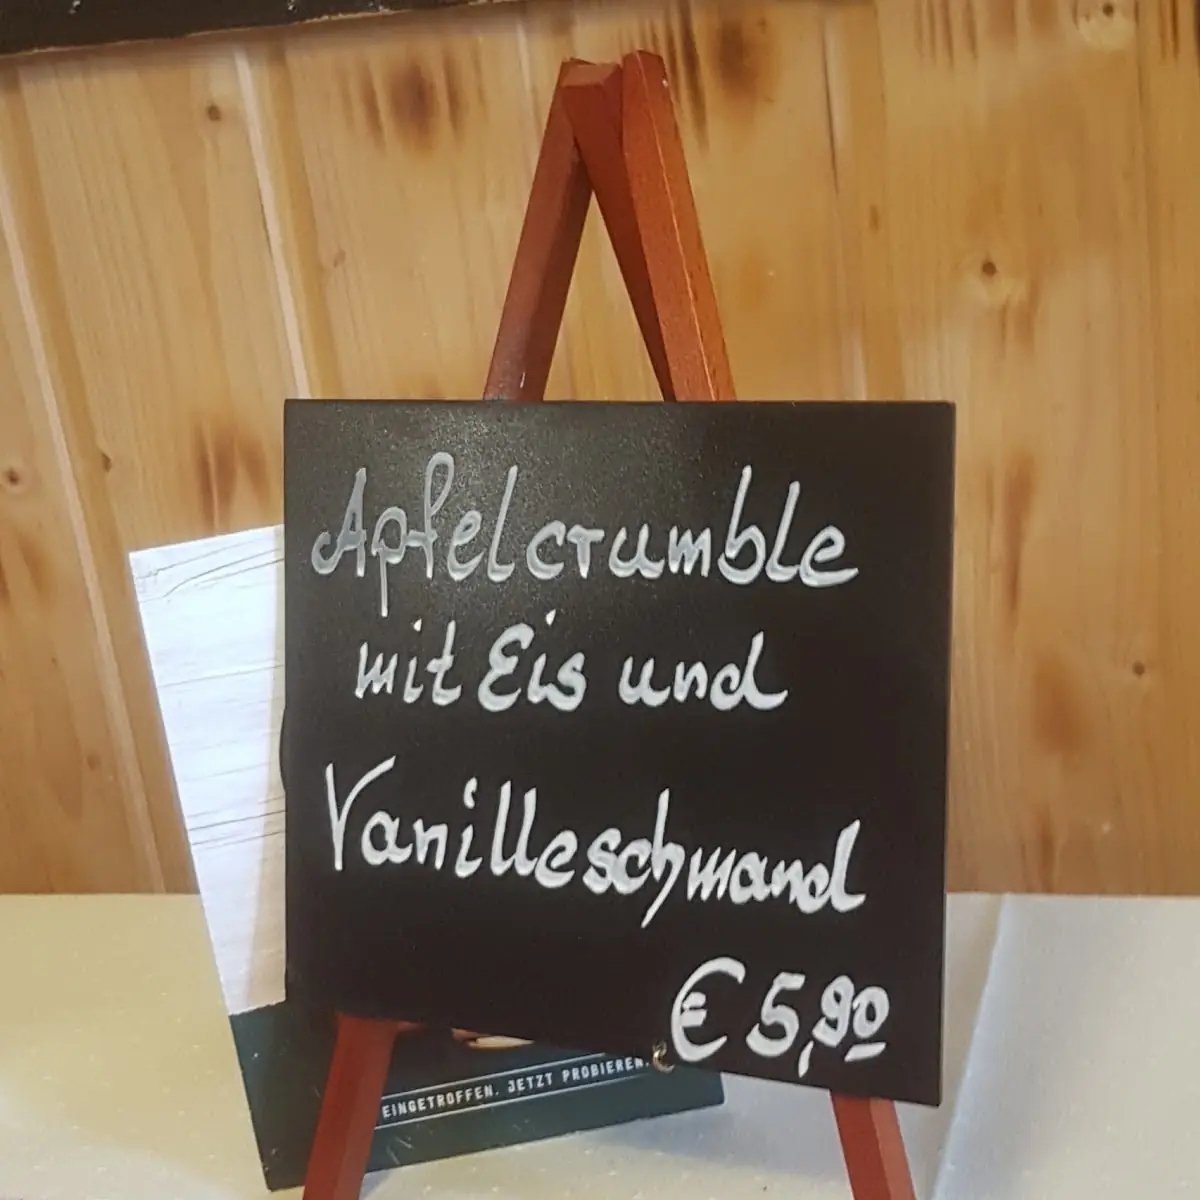 Apfelcrumble
mit Eis und
Vanilleschmand
€ 5,90
EINGETROFFEN. JETZT PROBIEREN.